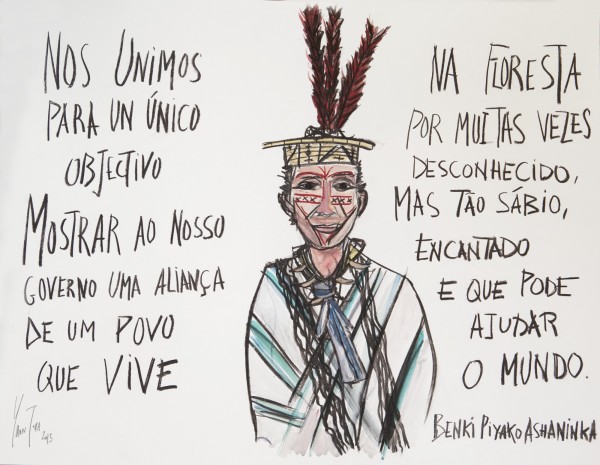 NOS UNIMOS
PARA UN ÚNICO
OBJECTIVO
MOSTRAR AO NOSSO
GOVERNO UMA ALIANÇA
DE UM POVO
QUE VIVE
NA FLORESTA
POR MUITAS VEZES
DESCONHECIDO,
MAS TÃO SÁBIO,
ENCANTADO
E QUE PODE
AJUDAR
O MUNDO.
BENKI PIYAKO ASHANINKA